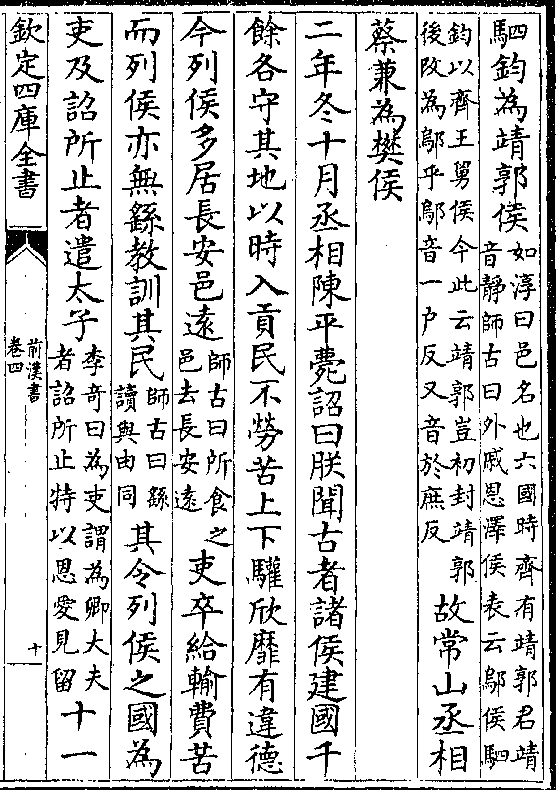 駟鈞為靖郭侯如淳曰邑名也六國時齊有靖郭君靖音靜師古曰外戚恩澤侯表云鄔侯駟
鈞以齊王舅侯今此云靖郭豈初封靖郭後改為鄔乎鄔音一户反又音於庶反故常山丞相
蔡兼為樊侯
二年冬十月丞相陳平薨詔曰朕聞古者諸侯建國千
餘各守其地以時入貢民不勞苦上下驩欣靡有違德
今列侯多居長安邑遠師古曰所食之邑去長安遠吏卒給輸費苦
而列侯亦無繇教訓其民師古曰繇讀與由同其令列侯之國為
吏及詔所止者遣太子李奇曰為吏謂為卿大夫者詔所止特以恩愛見留十一
欽定四庫全書
前漢書
卷四
十